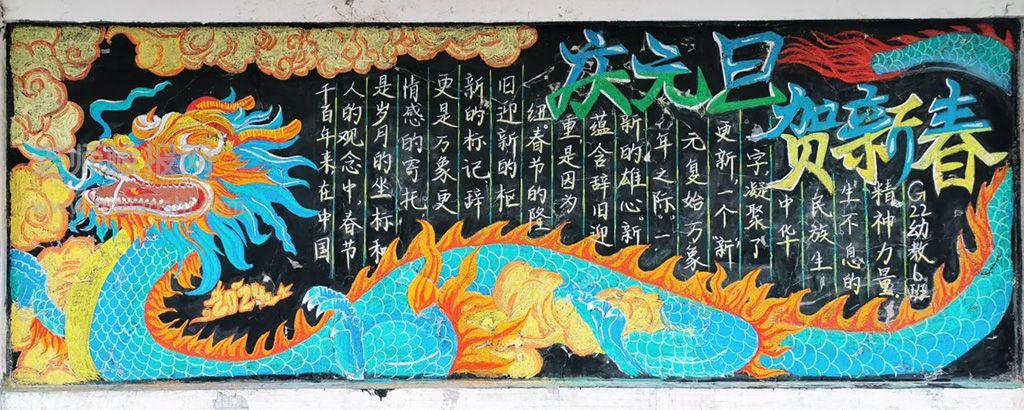 庆元旦
贺新春
千百年来在中国
人的观念中,春节
是岁月的坐标和
情感的寄托.
更是万象更
新的标记辞
旧迎新的枢
纽.春节的隆
重是因为
蕴含辞旧迎
新的雄心.新
年之际,一
元复始 万象
更新,一个"新"
字,凝聚了
中华
民族生
生不息的
精神力量.
G22幼教6班
2024